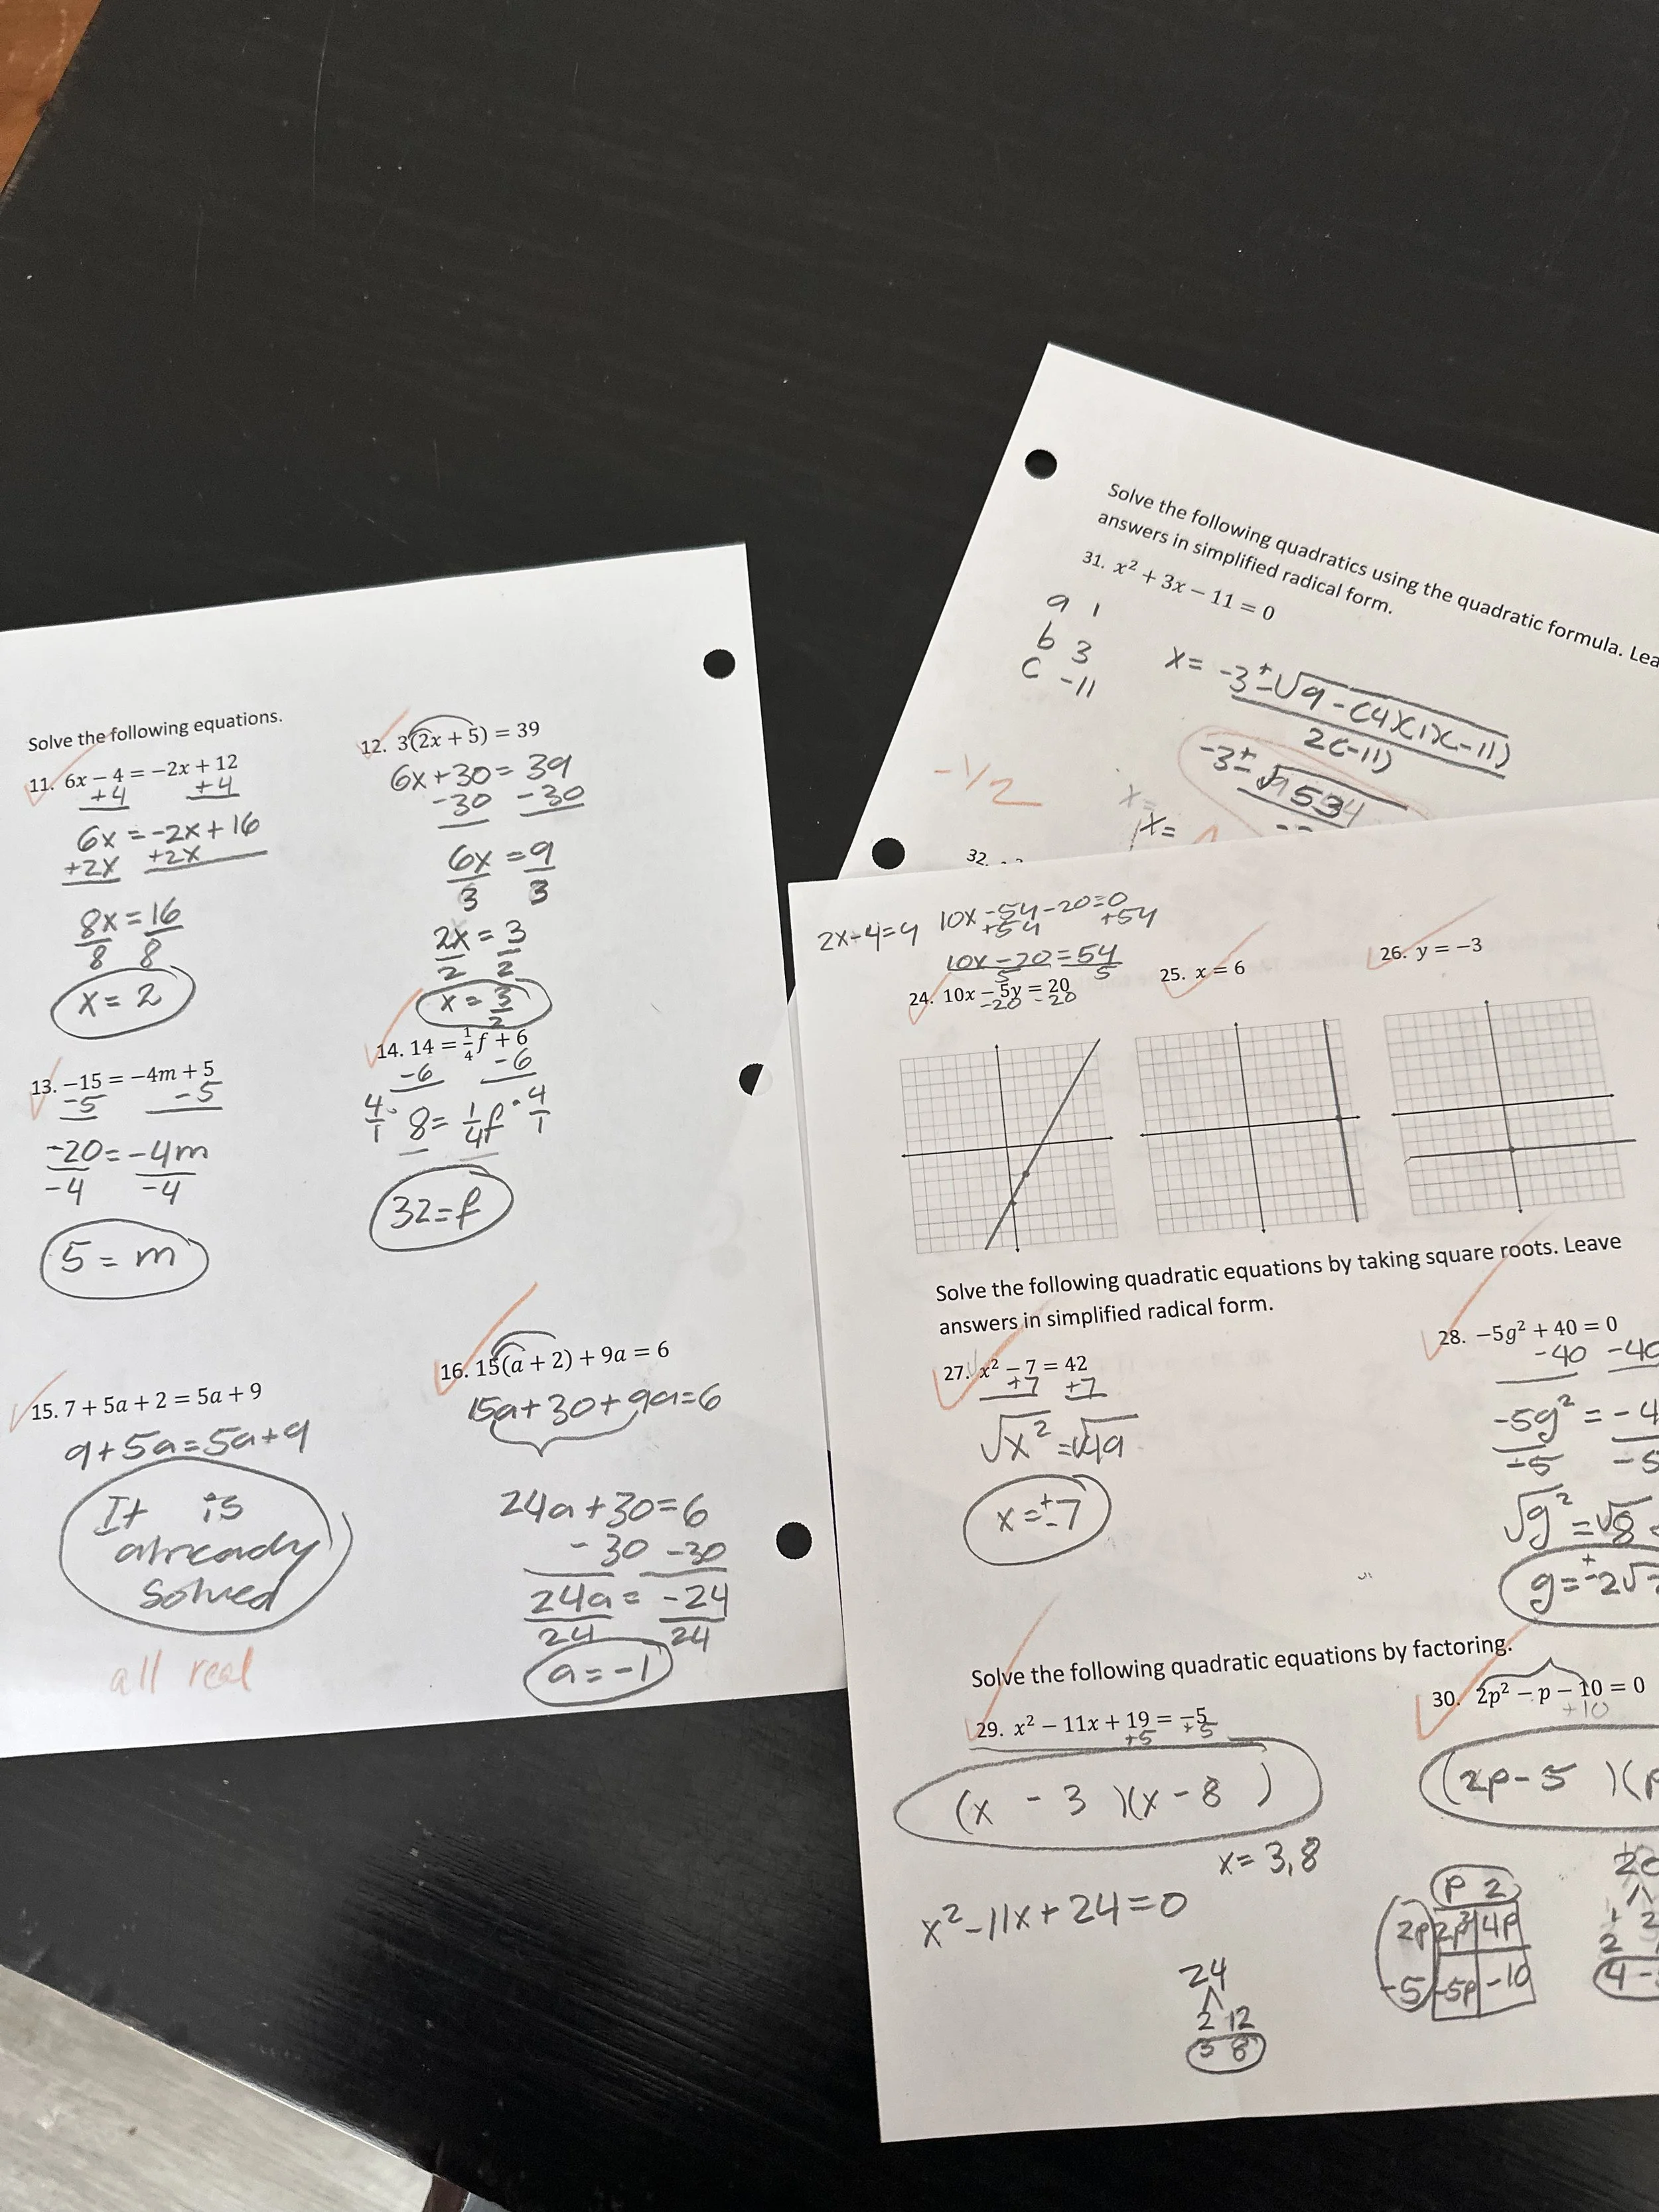 Solve the following equations.
11. 6x − 4 = −2x + 12
+4 +4
6x = -2x + 16
+2x +2x
8x = 16
8 8
x = 2
12. 3(2x + 5) = 39
6x + 30 = 39
-30 -30
6x = 9
3 3
2x = 3
2 2
x = 3/2
13. −15 = −4m + 5
-5 -5
-20 = -4m
-4 -4
5 = m
14. 14 = 1/4 f + 6
-6 -6
4/1 · 8 = 1/4 f · 4/1
32 = f
15. 7 + 5a + 2 = 5a + 9
9 + 5a = 5a + 9
It is
already
Solved
all real
16. 15(a + 2) + 9a = 6
15a + 30 + 9a = 6
24a + 30 = 6
- 30 -30
24a = -24
24 24
a = -1
Solve the following quadratics using the quadratic formula. Lea
answers in simplified radical form.
31. x² + 3x − 11 = 0
a 1
b 3
c -11
x = -3 ± √9 - (4)(1)(-11)
2(-11)
-3 ± √53
x =
x =
-1/2
32.
10x - 5y - 20 = 0
+5y +5y
10x - 20 = 5y
5 5
2x - 4 = y
24. 10x − 5y = 20
-20 -20
25. x = 6
26. y = −3
Solve the following quadratic equations by taking square roots. Leave
answers in simplified radical form.
27. x² − 7 = 42
+7 +7
√x² = √49
x = ± 7
28. −5g² + 40 = 0
-40 -40
-5g² = -4
-5 -5
√g² = √8
g = ± 2√
Solve the following quadratic equations by factoring.
29. x² − 11x + 19 = −5
+5 +5
(x - 3)(x - 8)
x = 3, 8
x² - 11x + 24 = 0
24
2 12
3 8
30. 2p² − p − 10 = 0
+10
(2p - 5)(p
p 2
2p 2p² 4p
-5 -5p -10
20
1 2
2
4 -